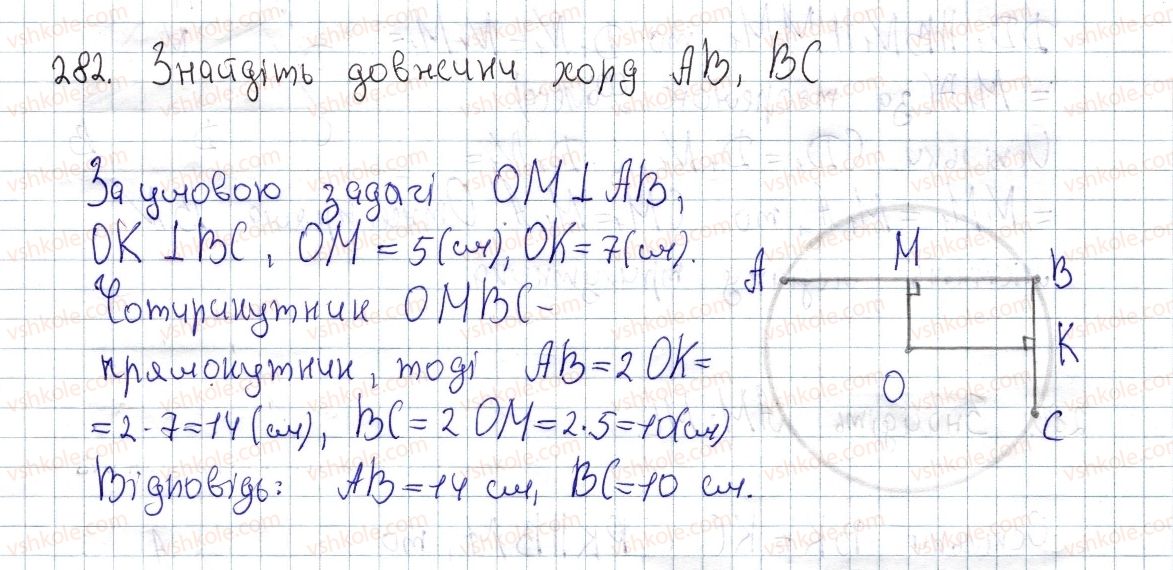 282. Знайдіть довжини хорд AB, BC
За умовою задачі OM⊥AB,
OK⊥BC, OM = 5(см), OK = 7(см).
Чотирикутник OMBC -
прямокутник, тоді AB = 2 OK =
= 2 · 7 = 14 (см), BC = 2 OM = 2·5 = 10(см)
Відповідь: AB = 14 см, BC = 10 см.
A M B
K
O
C
vshkole.com